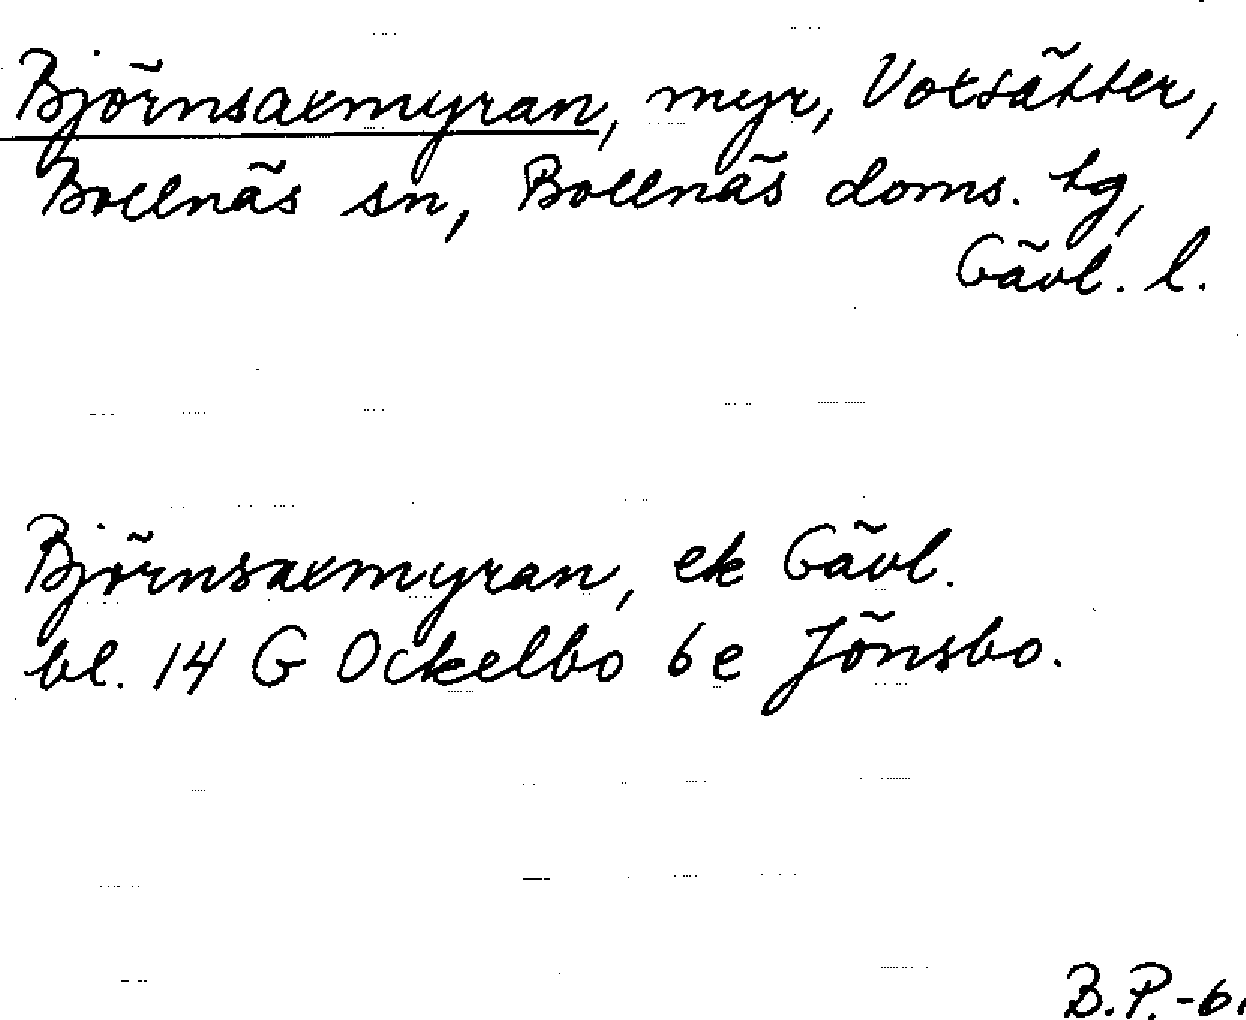 Björnsaxmyran, myr, Voxsätter,
Bollnäs sn, Bollnäs doms. tg,
Gävl. l.
Björnsaxmyran, ek Gävl.
bl. 14 G Ockelbo 6 e Jönsbo.
B.P.-61